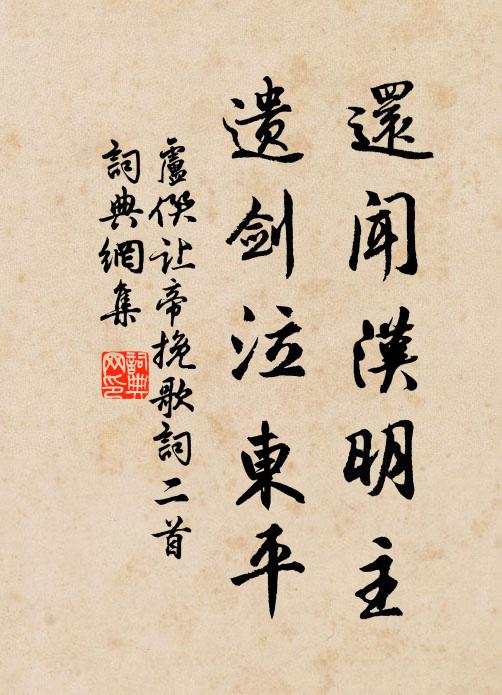 還聞漢明主
遺劍泣東平
盧僎让帝挽歌詞二首
詞典網集
詞典网印